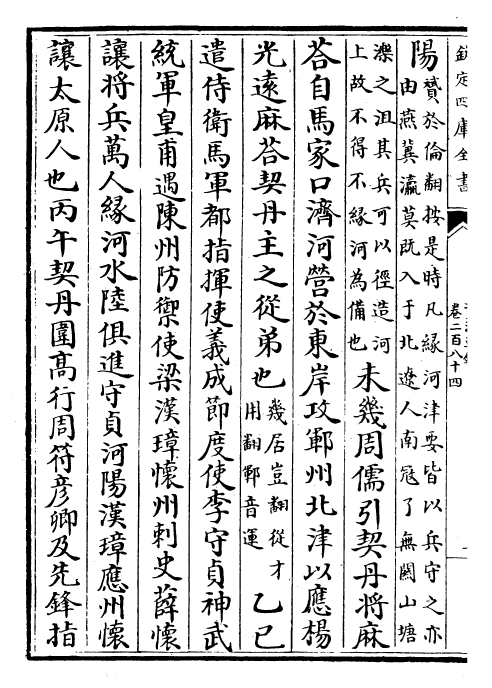 欽定四庫全書
卷二百八十四
陽
贇於倫翻按是時凡縁河津要皆以兵守之亦
由燕冀瀛莫既入于北遼人南冦了無闗山塘
濼之沮其兵可以徑造河
上故不得不縁河為備也
未幾周儒引契丹將麻
荅自馬家口濟河營於東岸攻鄆州北津以應楊
光逺麻荅契丹主之從弟也
幾居豈翻從才
用翻鄆音運
乙巳
遣侍衛馬軍都指揮使義成節度使李守貞神武
統軍皇甫遇陳州防禦使梁漢璋懷州刺史薛懷
讓將兵萬人縁河水陸俱進守貞河陽漢璋應州懷
讓太原人也丙午契丹圍髙行周符彦卿及先鋒指